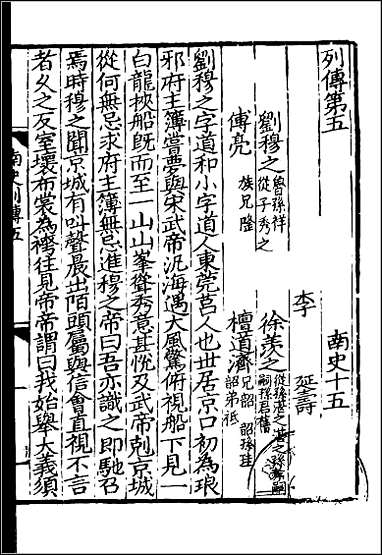 列傳第五　南史十五
李　延壽
劉穆之曾孫祥從子秀之　徐羨之從孫湛之湛之孫緄嗣孫君蒨
傅亮族兄隆　檀道濟兄韶韶孫珪韶弟祗
劉穆之字道和小字道人東莞莒人也世居京口初為琅
邪府主簿嘗夢與宋武帝汎海遇大風驚俯視船下見二
白龍挾船既而至一山山峯聳秀意甚悅及武帝剋京城
從何無忌求府主簿無忌進穆之帝曰吾亦識之即馳召
焉時穆之聞京城有叫聲晨出陌頭屬與信會直視不言
者久之反室壞布裳為袴往見帝帝謂曰我始舉大義須
南史列傳五